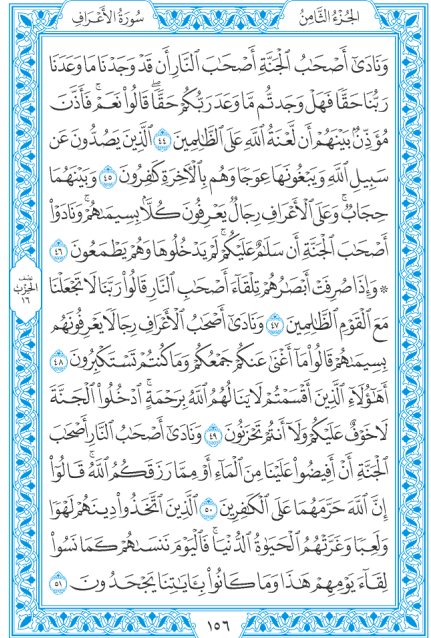 الجُزْءُ الثَّامِنُ
سُورَةُ الأَعْرَافِ
وَنَادَىٰٓ أَصْحَٰبُ ٱلْجَنَّةِ أَصْحَٰبَ ٱلنَّارِ أَن قَدْ وَجَدْنَا مَا وَعَدَنَا
رَبُّنَا حَقًّا فَهَلْ وَجَدتُّم مَّا وَعَدَ رَبُّكُمْ حَقًّا ۖ قَالُوا۟ نَعَمْ ۚ فَأَذَّنَ
مُؤَذِّنٌۢ بَيْنَهُمْ أَن لَّعْنَةُ ٱللَّهِ عَلَى ٱلظَّٰلِمِينَ ٤٤ ٱلَّذِينَ يَصُدُّونَ عَن
سَبِيلِ ٱللَّهِ وَيَبْغُونَهَا عِوَجًا وَهُم بِٱلْءَاخِرَةِ كَٰفِرُونَ ٤٥ وَبَيْنَهُمَا
حِجَابٌ ۚ وَعَلَى ٱلْأَعْرَافِ رِجَالٌ يَعْرِفُونَ كُلًّۢا بِسِيمَىٰهُمْ ۚ وَنَادَوْا۟
أَصْحَٰبَ ٱلْجَنَّةِ أَن سَلَٰمٌ عَلَيْكُمْ ۚ لَمْ يَدْخُلُوهَا وَهُمْ يَطْمَعُونَ ٤٦
۞ وَإِذَا صُرِفَتْ أَبْصَٰرُهُمْ تِلْقَآءَ أَصْحَٰبِ ٱلنَّارِ قَالُوا۟ رَبَّنَا لَا تَجْعَلْنَا
مَعَ ٱلْقَوْمِ ٱلظَّٰلِمِينَ ٤٧ وَنَادَىٰٓ أَصْحَٰبُ ٱلْأَعْرَافِ رِجَالًا يَعْرِفُونَهُم
بِسِيمَىٰهُمْ قَالُوا۟ مَآ أَغْنَىٰ عَنكُمْ جَمْعُكُمْ وَمَا كُنتُمْ تَسْتَكْبِرُونَ ٤٨
أَهَٰٓؤُلَآءِ ٱلَّذِينَ أَقْسَمْتُمْ لَا يَنَالُهُمُ ٱللَّهُ بِرَحْمَةٍ ۚ ٱدْخُلُوا۟ ٱلْجَنَّةَ
لَا خَوْفٌ عَلَيْكُمْ وَلَآ أَنتُمْ تَحْزَنُونَ ٤٩ وَنَادَىٰٓ أَصْحَٰبُ ٱلنَّارِ أَصْحَٰبَ
ٱلْجَنَّةِ أَنْ أَفِيضُوا۟ عَلَيْنَا مِنَ ٱلْمَآءِ أَوْ مِمَّا رَزَقَكُمُ ٱللَّهُ ۚ قَالُوٓا۟
إِنَّ ٱللَّهَ حَرَّمَهُمَا عَلَى ٱلْكَٰفِرِينَ ٥٠ ٱلَّذِينَ ٱتَّخَذُوا۟ دِينَهُمْ لَهْوًا
وَلَعِبًا وَغَرَّتْهُمُ ٱلْحَيَوٰةُ ٱلدُّنْيَا ۚ فَٱلْيَوْمَ نَنسَىٰهُمْ كَمَا نَسُوا۟
لِقَآءَ يَوْمِهِمْ هَٰذَا وَمَا كَانُوا۟ بِـَٔايَٰتِنَا يَجْحَدُونَ ٥١
نِصْفُ
الحِزْبِ
١٦
١٥٦